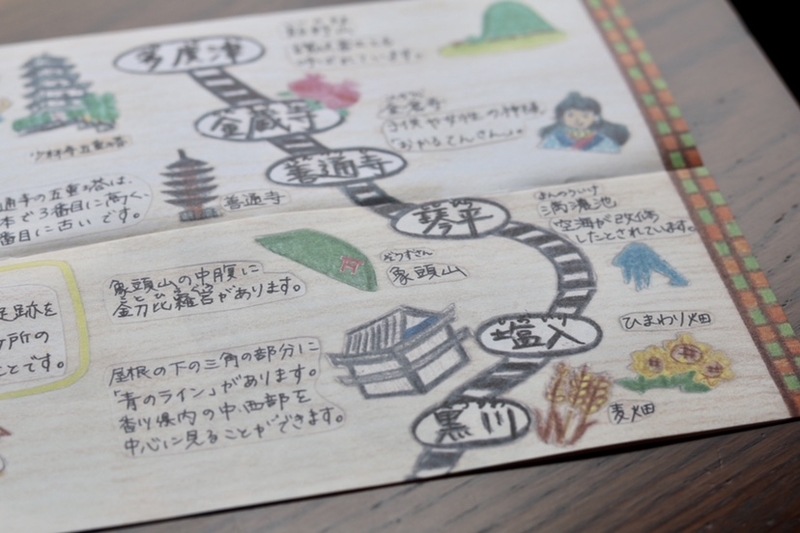 多度津
ゆでれています。
少林寺五重の塔
金蔵寺
金倉寺
子供や女性の神様
「おかるてんさん」。
善通寺
善通寺
通寺の五重の塔は、
本で3番目に高く、
番目に古いです。
琴平
まんのういけ
満濃池
空海が改修
したとされています。
ぞうずさん
象頭山
象頭山の中腹に
金刀比羅宮があります。
足跡を
ヶ所の
ことです。
塩入
ひまわり畑
屋根の下の三角の部分に
「青のライン」があります。
香川県内の中・西部を
中心に見ることができます。
黒川
麦畑